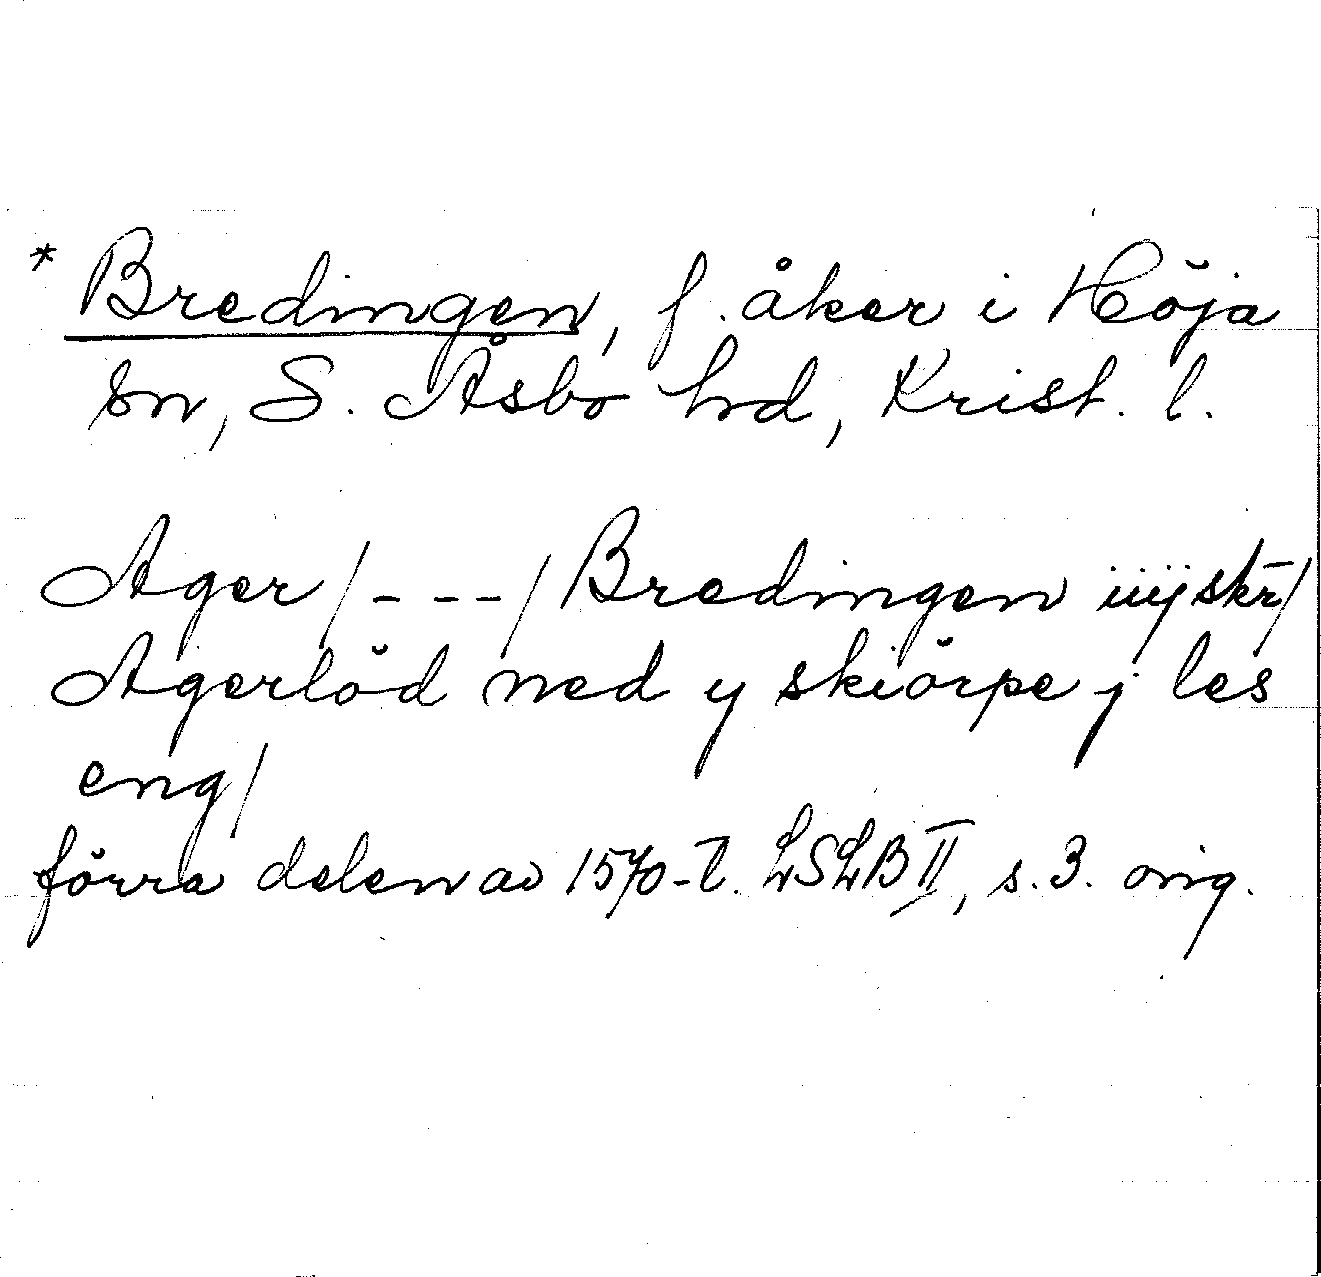 * Bredingen, f. åker i Höja
sn, S. Åsbo hd, Krist. l.
Ager/---/Bredingen iiij skr/
Agerlöd ned y skiörpe j les
eng/
förra delen av 1570-t. LSLB II, s. 3. orig.